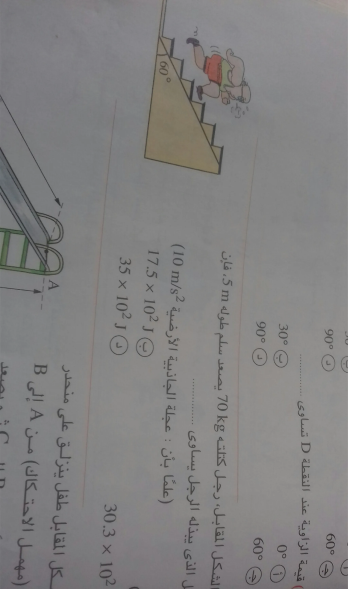 60° ج
90° د
) قيمة الزاوية عند النقطة D تساوى ............
0° أ
30° ب
60° ج
90° د
الشكل المقابل، رجل كتلته 70 kg يصعد سلم طوله 5 m، فإن
ل الذى يبذله الرجل يساوى ............
(علمًا بأن : عجلة الجاذبية الأرضية 10 m/s²)
17.5 × 10² J ب
30.3 × 10²
35 × 10² J د
60°
ـكل المقابل طفل ينزلق على منحدر
(مهمل الاحتكاك) من A إلى B
A